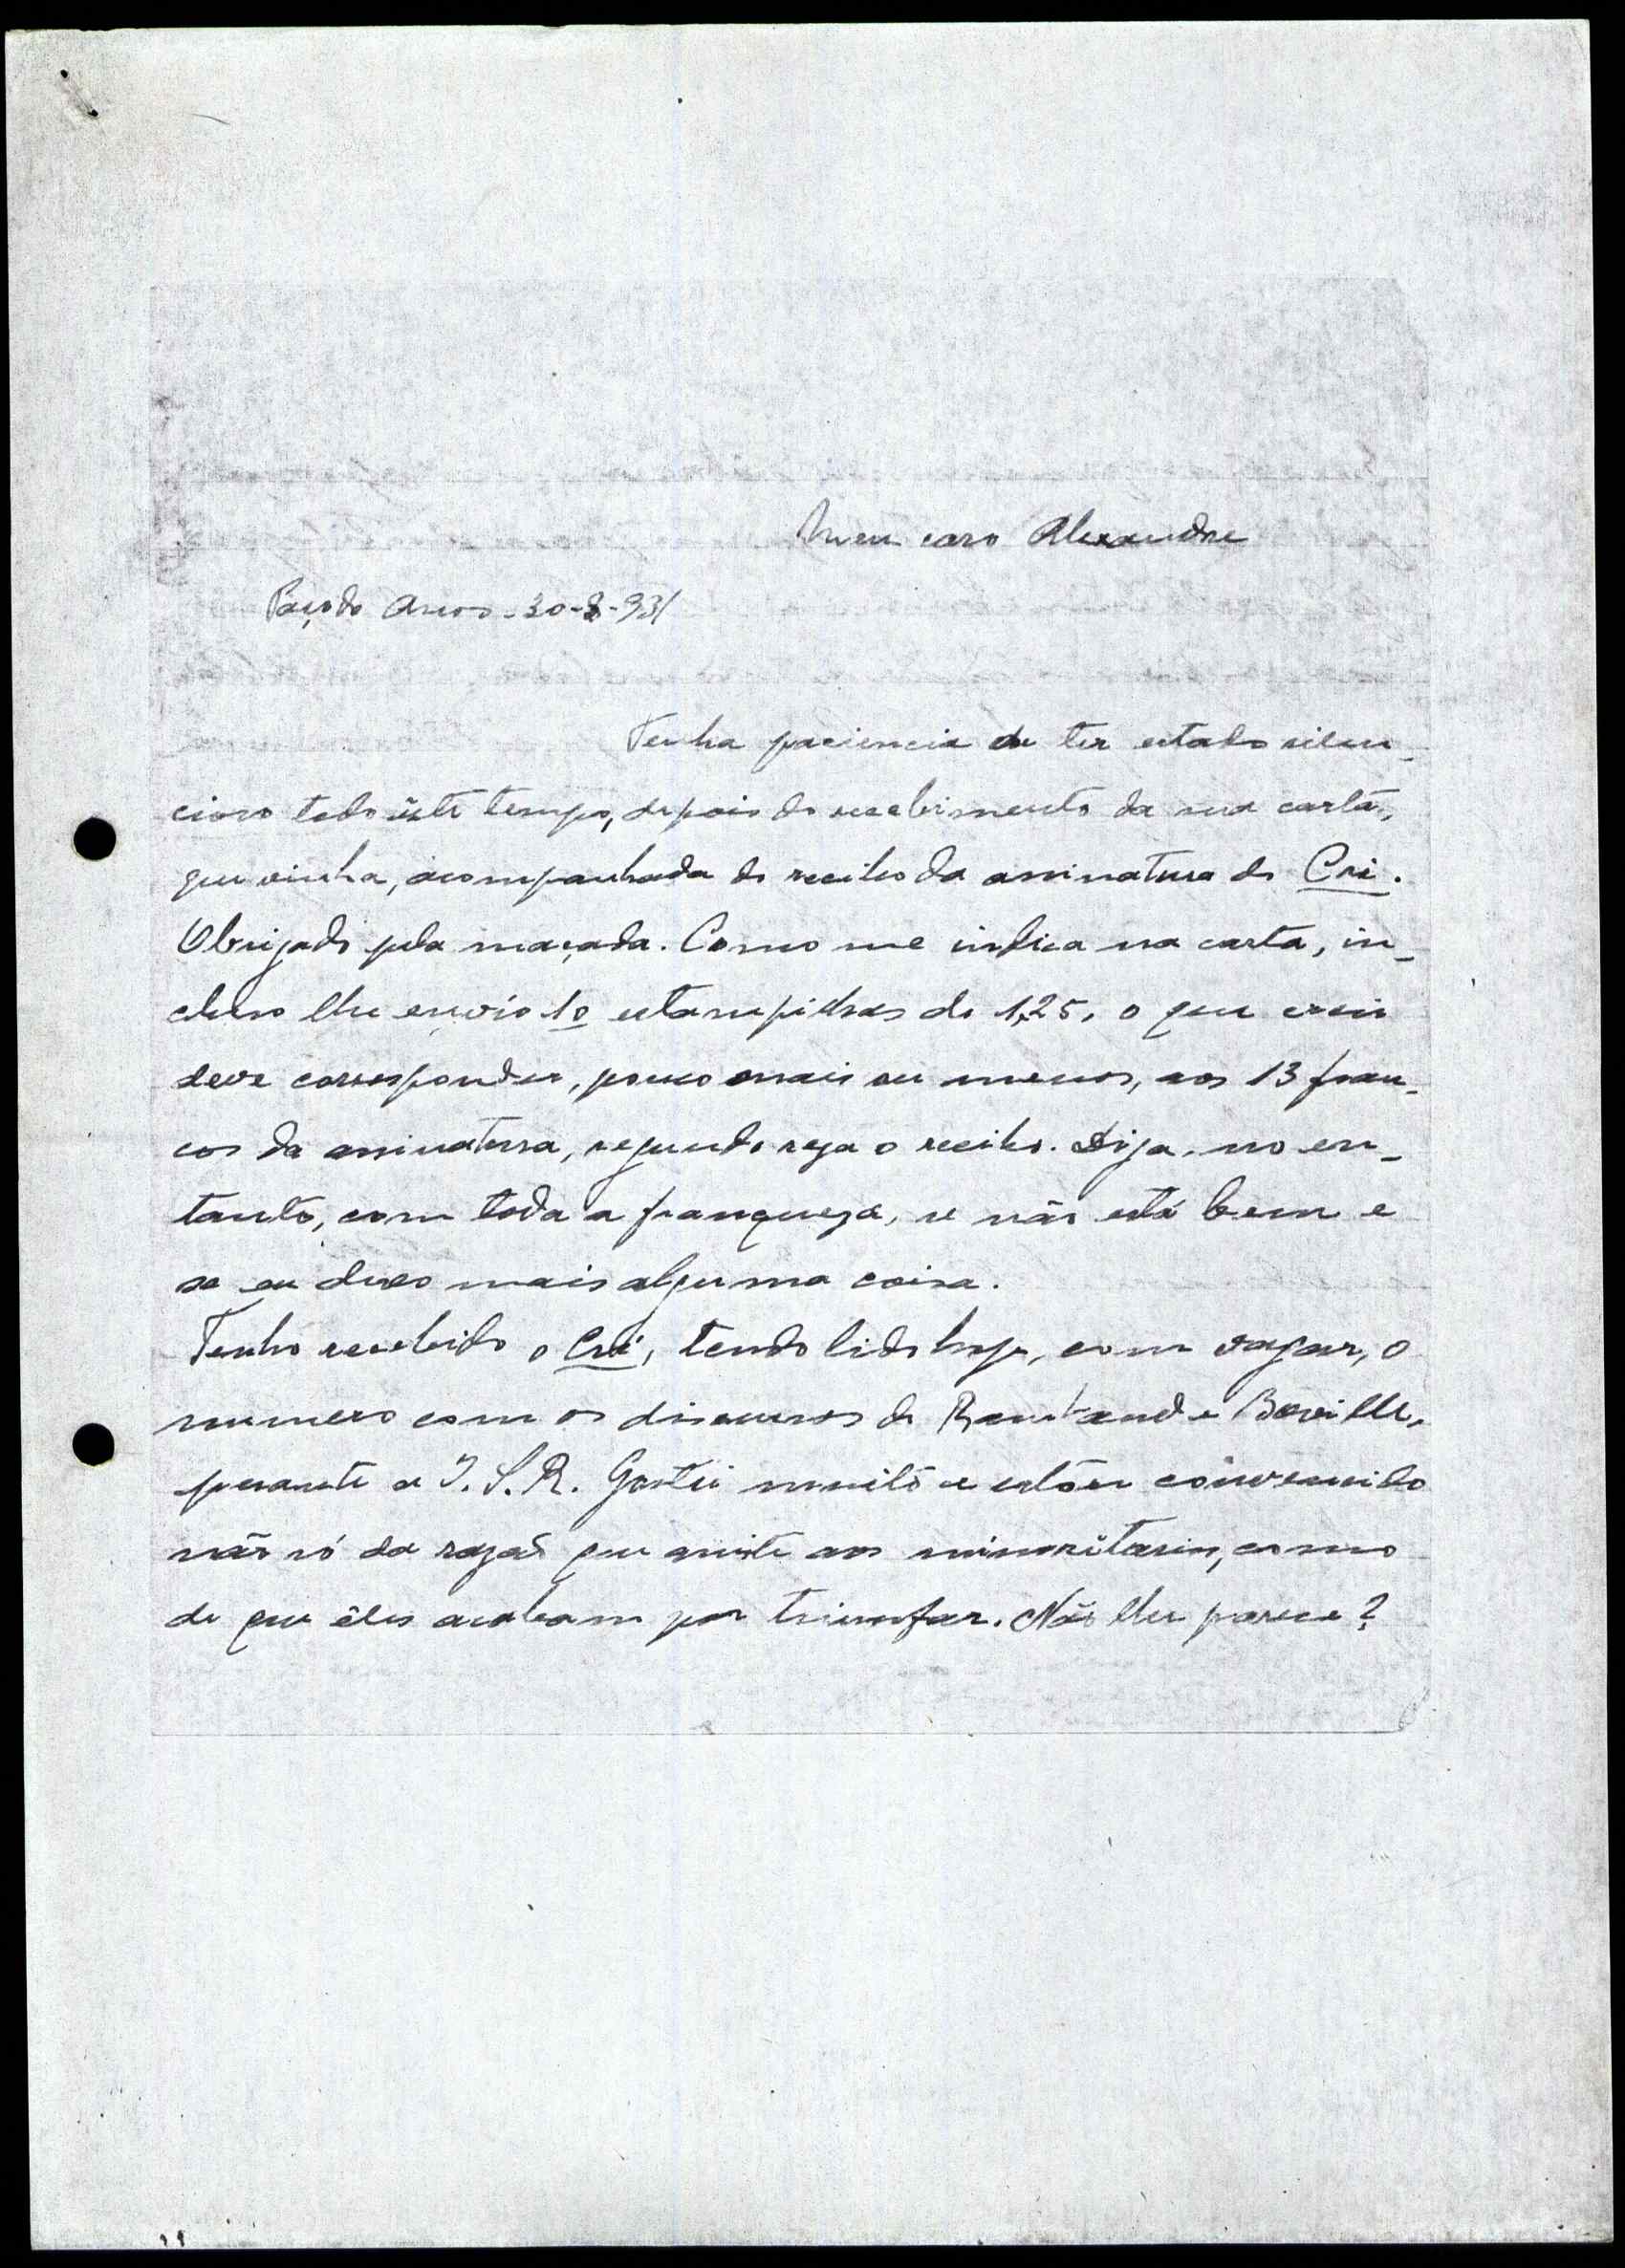 Meu caro Alexandre
Paço do Arcos - 30-8-931
Tenha paciencia de ter estado silen-
cioso todo êste tempo, depois do recebimento da sua carta,
que vinha, acompanhada do recibo da assinatura do Cri.
Obrigado pela maçada. Como me indica na carta, in-
cluso lhe envio 10 estampilhas de 1,25, o que creio
deve corresponder, pouco mais ou menos, aos 13 fran-
cos da assinatura, segundo reza o recibo. Diga, no en-
tanto, com toda a franqueza, se não está bem e
se eu devo mais alguma coisa.
Tenho recebido o Cri, tendo lido hoje, com vagar, o
numero com os discursos de e Boville,
perante a I.S.R. Gostei muito e estou convencido
não só da razão que assiste aos minoritarios, como
de que êles acabam por triunfar. Não lhe parece?